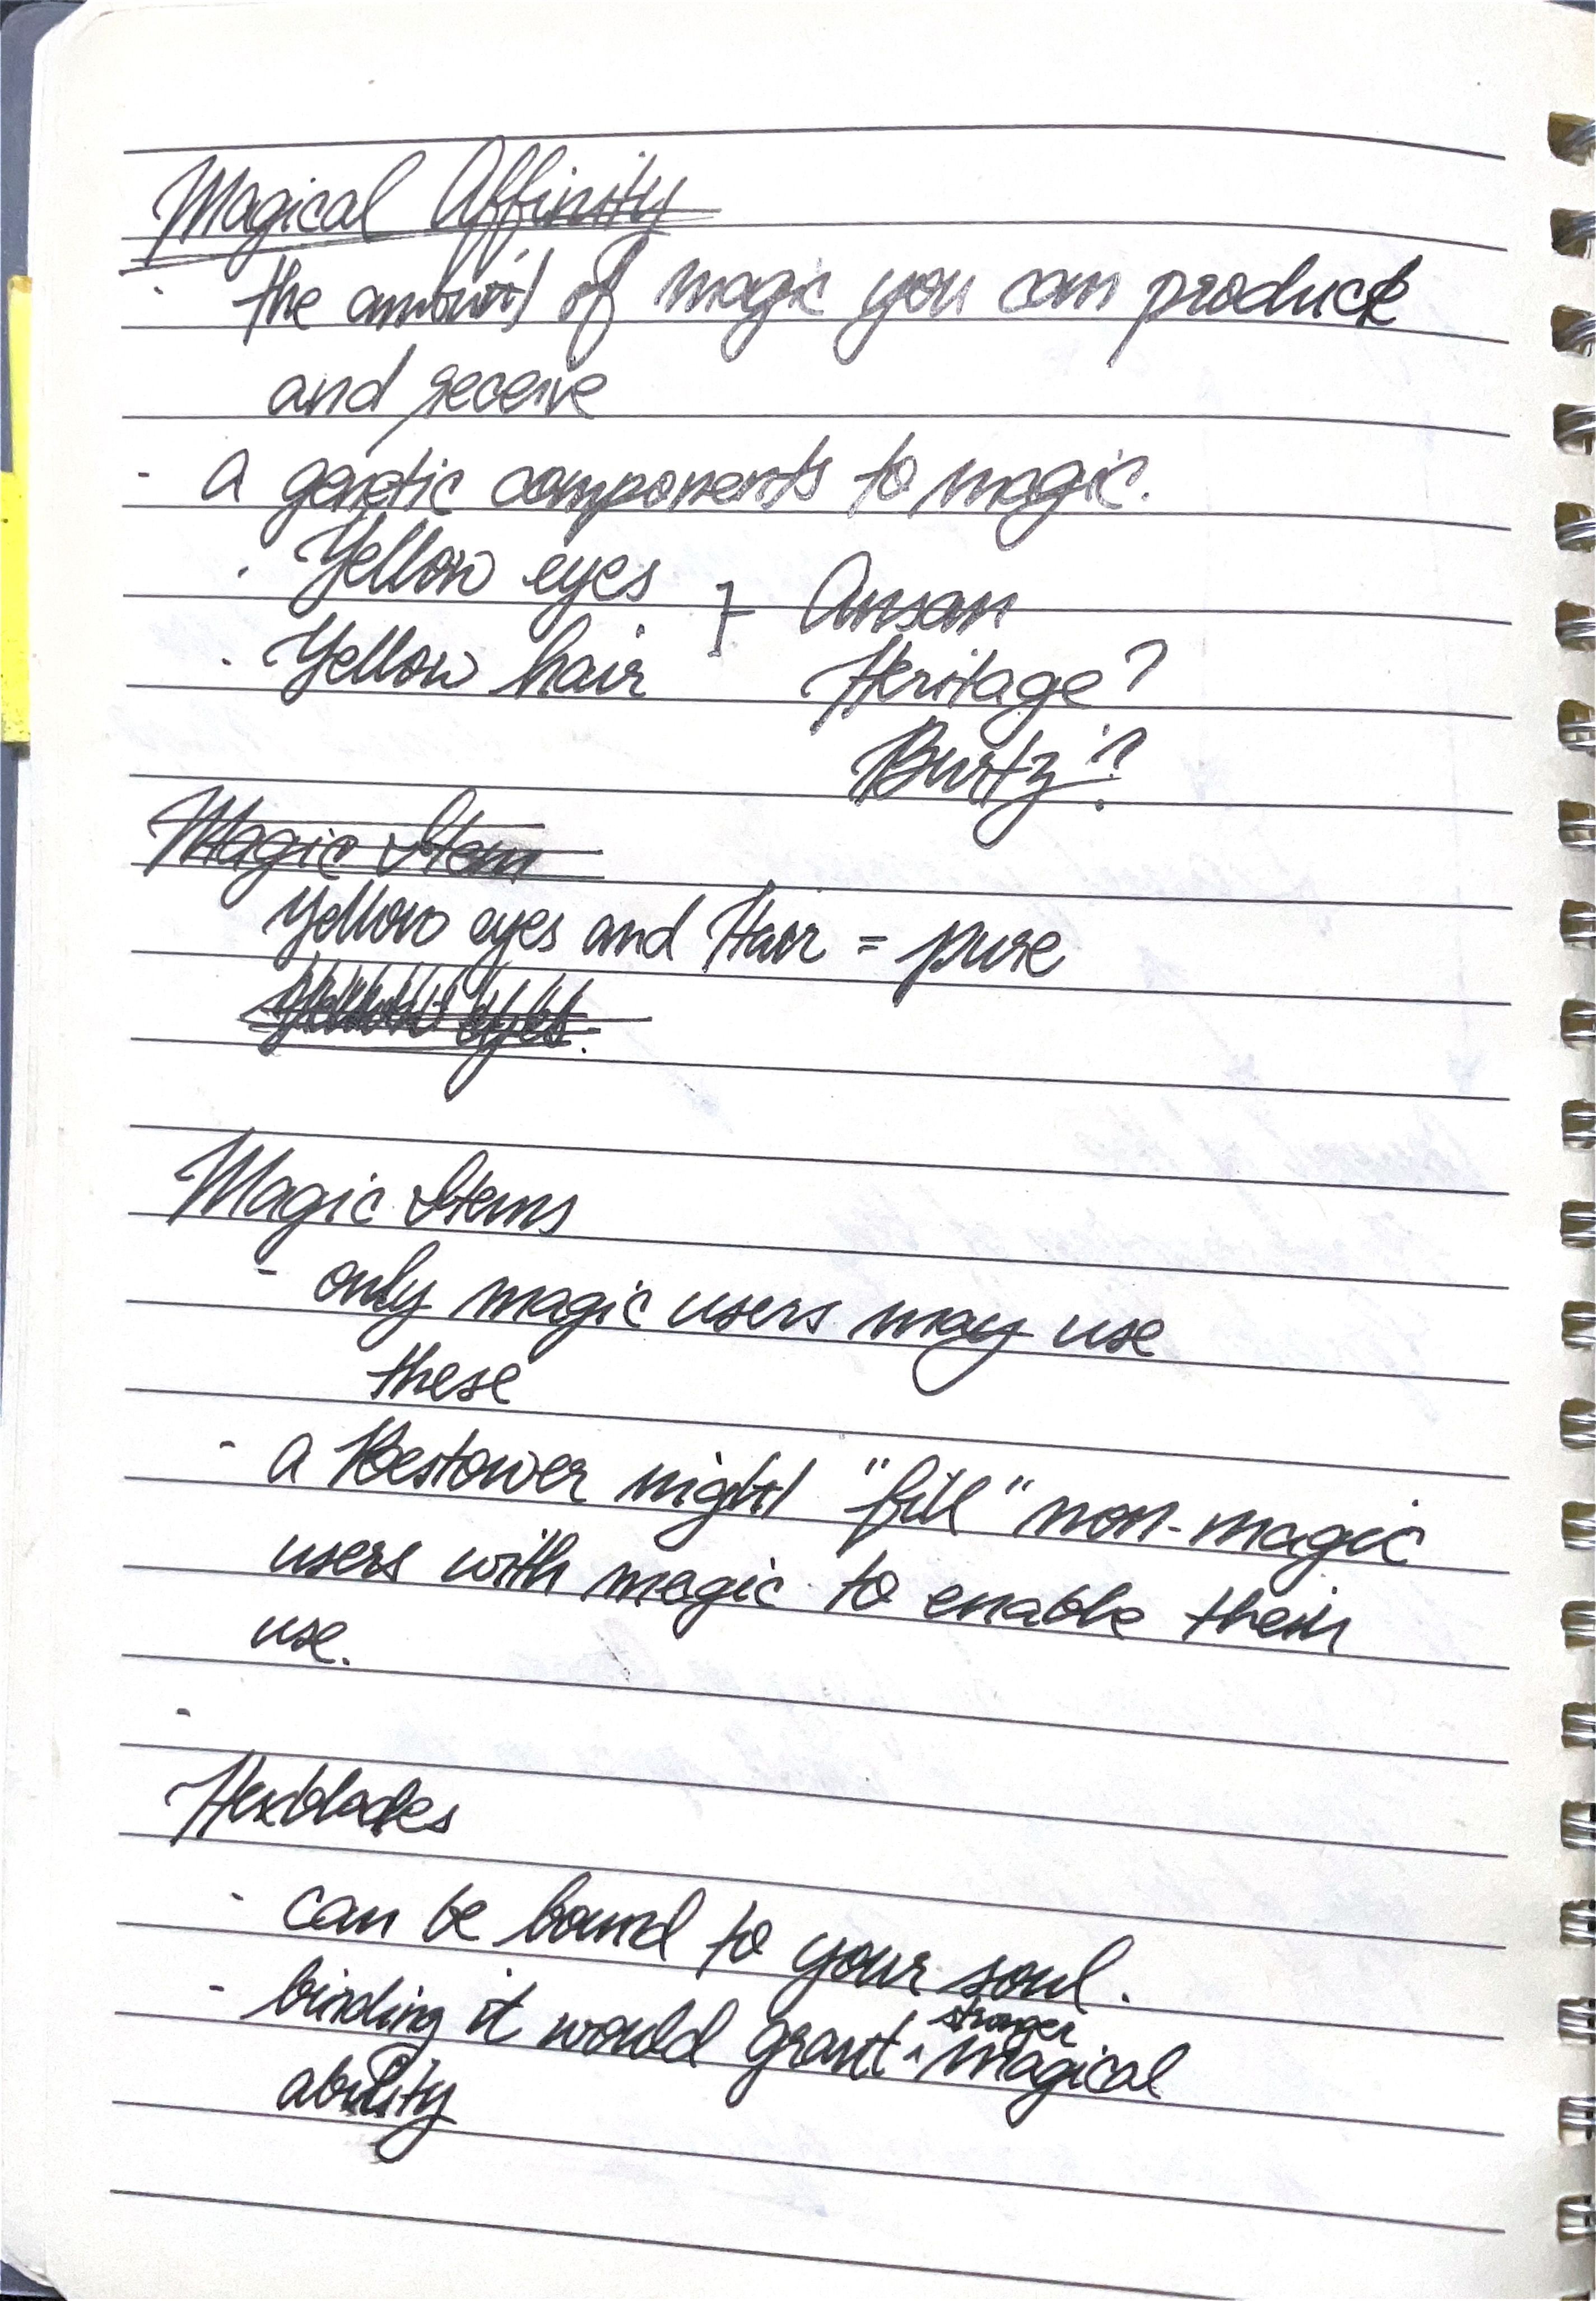 Magical Affinity
· the amount of magic you can product
and receive
- a genetic components to magic.
· Yellow eyes } Ansan
· Yellow hair Heritage?
Burtz??
Magic Item
Yellow eyes and Hair = pure
Yellow eyes.
Magic Items
- only magic users may use
these
- a Bestower might "fill" non-magic
users with magic to enable their
use.
-
Hexblades
- can be bound to your soul.
- binding it would grant ^ stronger magical
ability